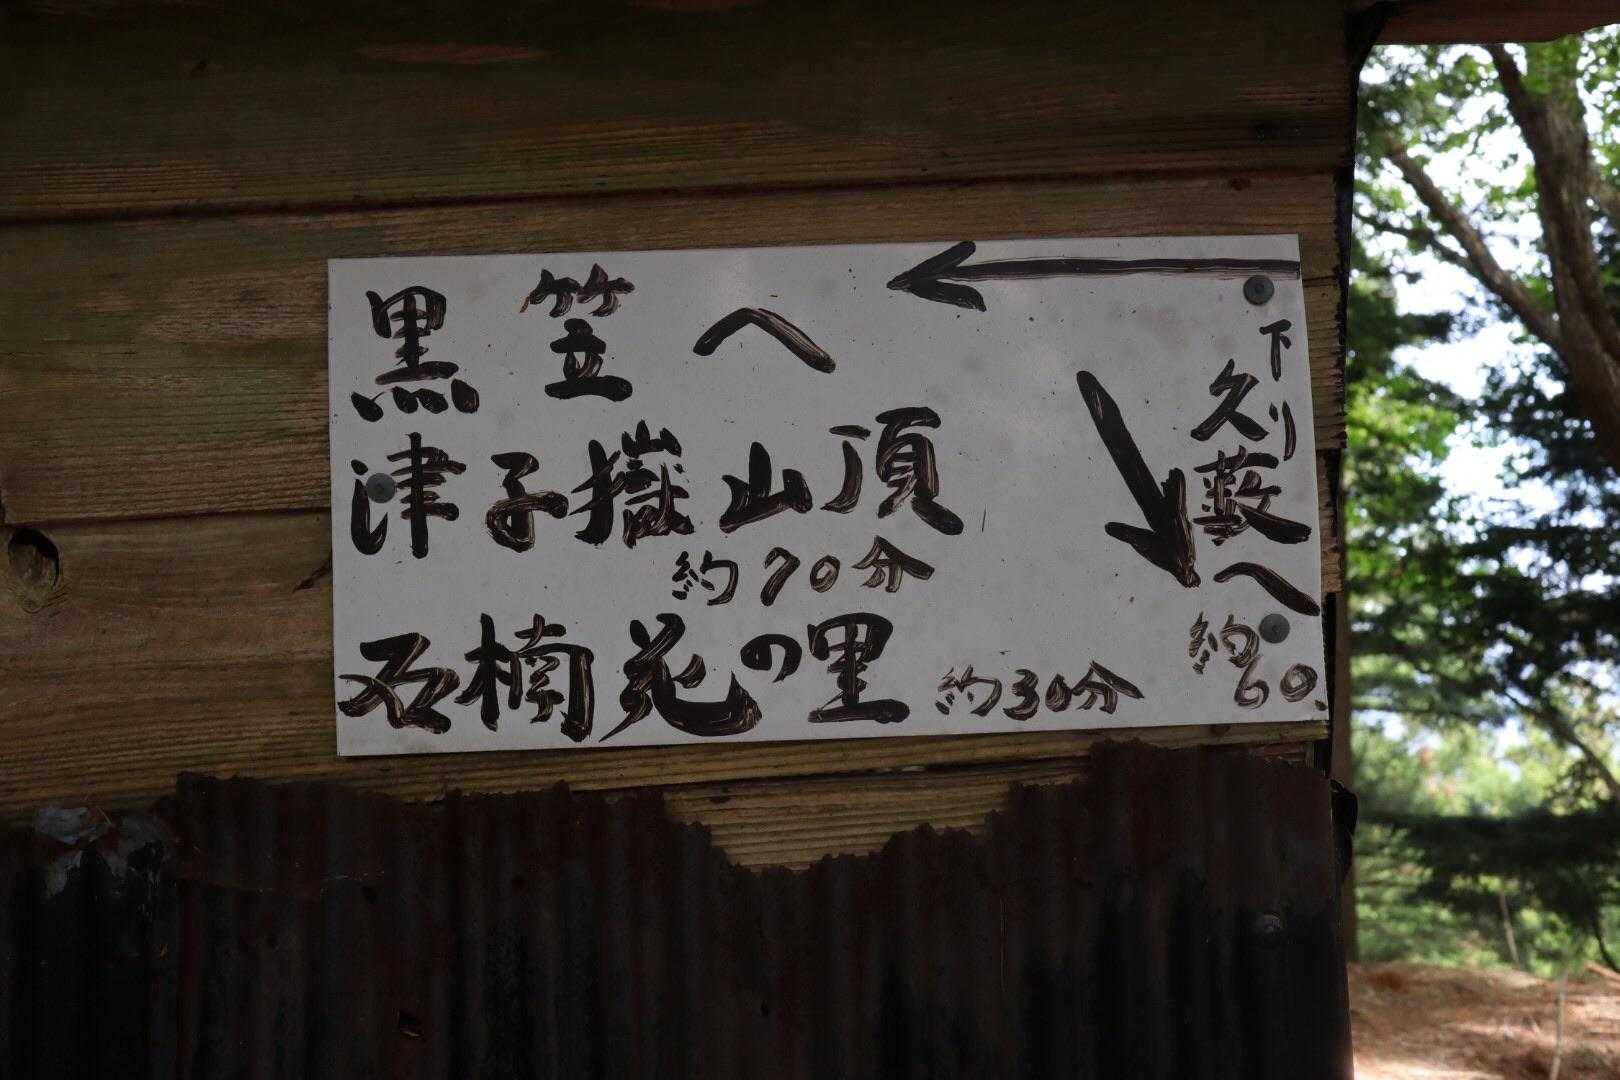 黒笠へ
津子嶽山頂
約70分
石楠花の里 約30分
下り
久薮へ
約60.